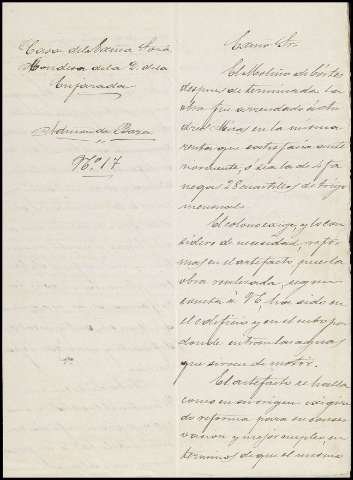 Casa del Excmo Sor
Condesa de la P. de la
Enjarada
Admon de Baza
Nº 17
Excmo Sr.
El Molino de Cortes
despues de terminada la
obra fué arrendado á An
drés Heras en la misma
renta que satisfacia ante
riormente, ó sea la de 4 fa
negas 28 cuartillos de trigo
mensuales.
El colono exige, y lo con
sidero de necesidad, refor
mas en el artefacto, pues la
obra realizada, segun
consta á VE, ha sido en
el edificio y en el cubo por
donde entran las aguas
que sirven de motor.
El artefacto se halla
como en su origen exigien
do reforma para su conser
vacion y mejor empleo, en
terminos de que el mismo